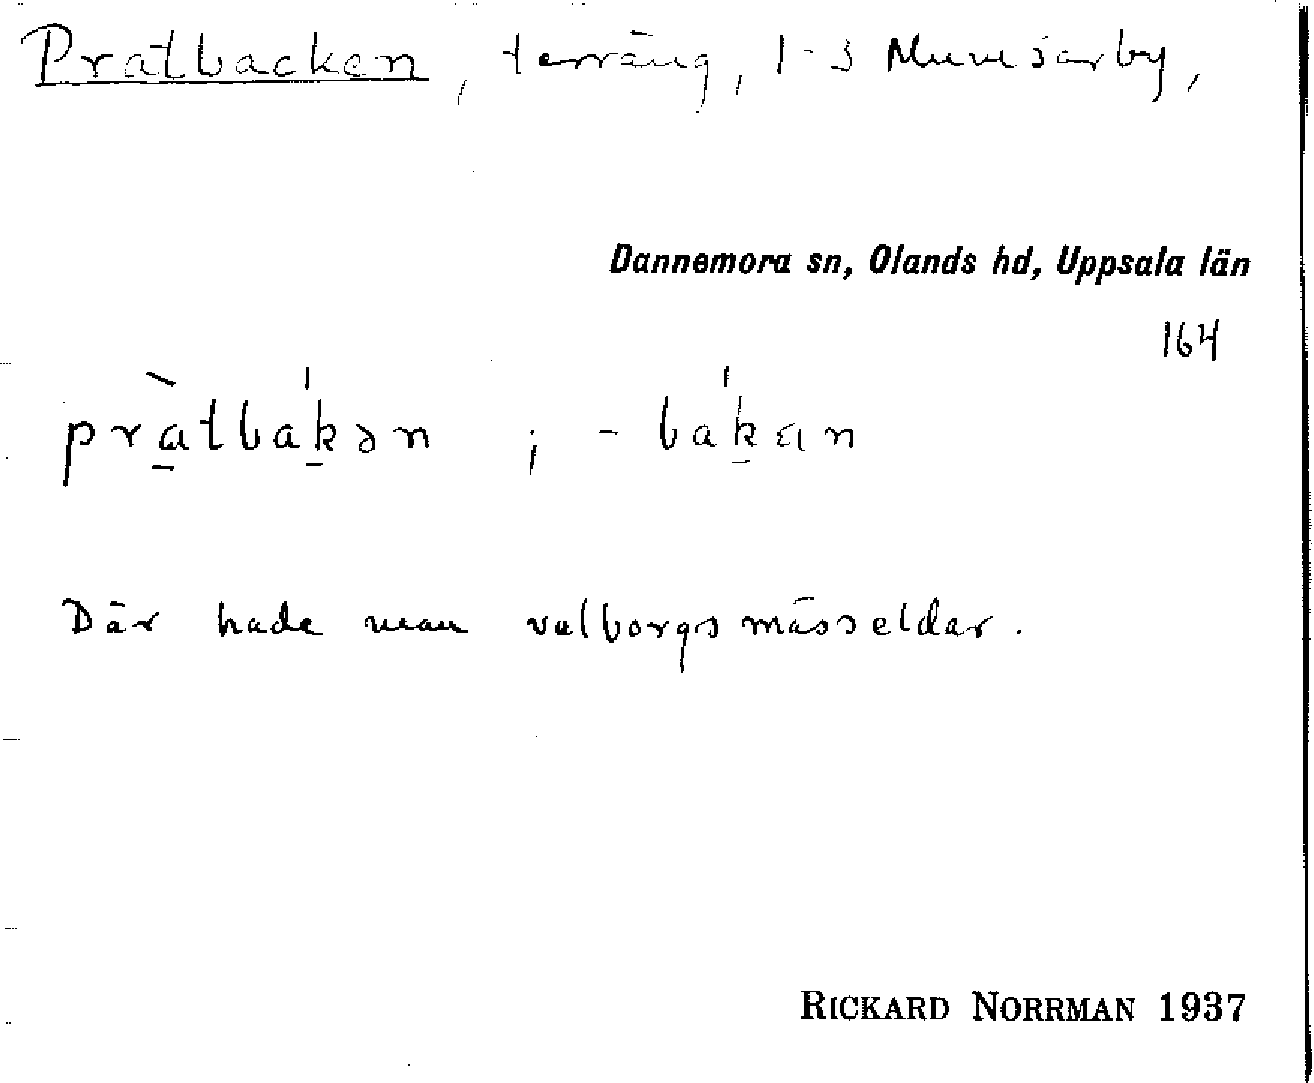 Pratbacken, terräng, 1-3 Munsarby,
Dannemora sn, Olands hd, Uppsala län
164
pràtbákən ; - bákan
Där hade man valborgsmässeldar.
RICKARD NORRMAN 1937